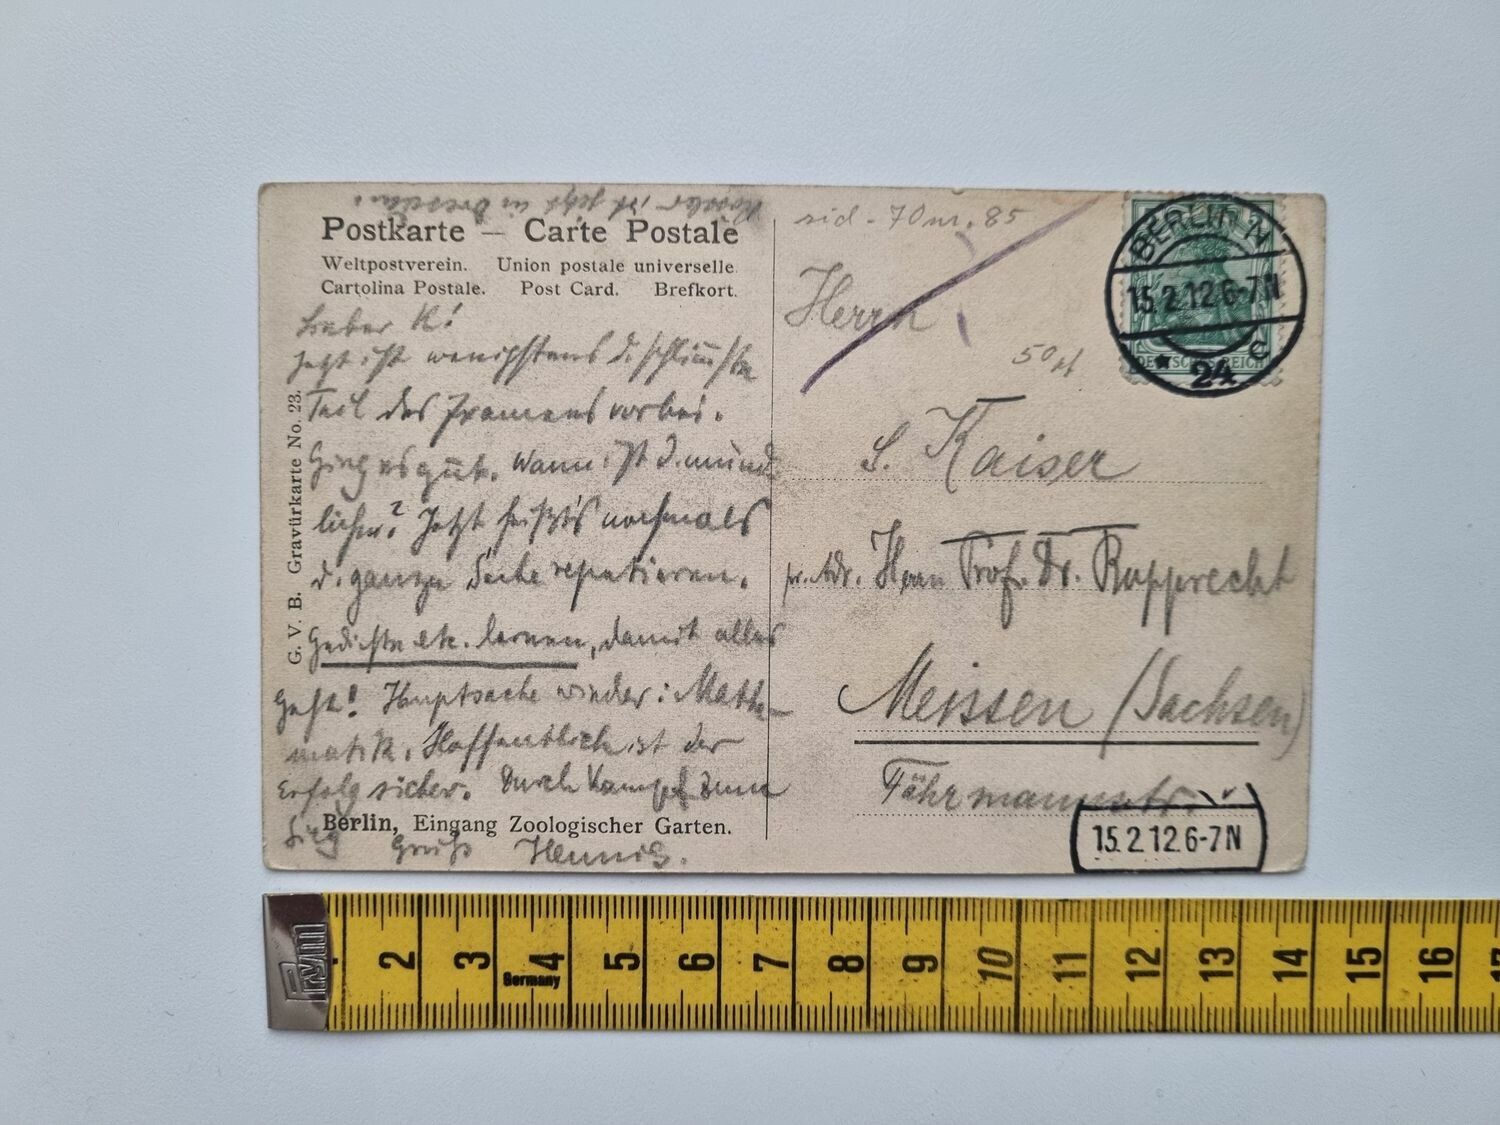 Rossler ist jetzt in Dresden!
Postkarte – Carte Postale
Weltpostverein. Union postale universelle.
Cartolina Postale. Post Card. Brefkort.
Lieber K!
Jetzt ist wenigstens d. schlimmste
Teil des Examens vorbei.
Ging es gut. Wann ist d. münd
liche? Jetzt heißt's nochmals
d. ganze Sache repetieren.
Gedichte etc. lernen, damit alles
geht! Hauptsache wieder: Mathe-
matik. Hoffentlich ist der
Erfolg sicher. Durch Kampf zum
Sieg
Gruß Hennig.
Berlin, Eingang Zoologischer Garten.
G. V. B. Gravürkarte No. 23.
70 nr. 85
Herrn
50
S. Kaiser
pr. Adr. Herrn Prof. Dr. Rupprecht
Meissen (Sachsen)
Fährmannstr.
BERLIN N
15.2.12.6-7N
* 24 C
DEUTSCHES REICH
15.2.12.6-7N
Prym
Germany
2 3 4 5 6 7 8 9 10 11 12 13 14 15 16